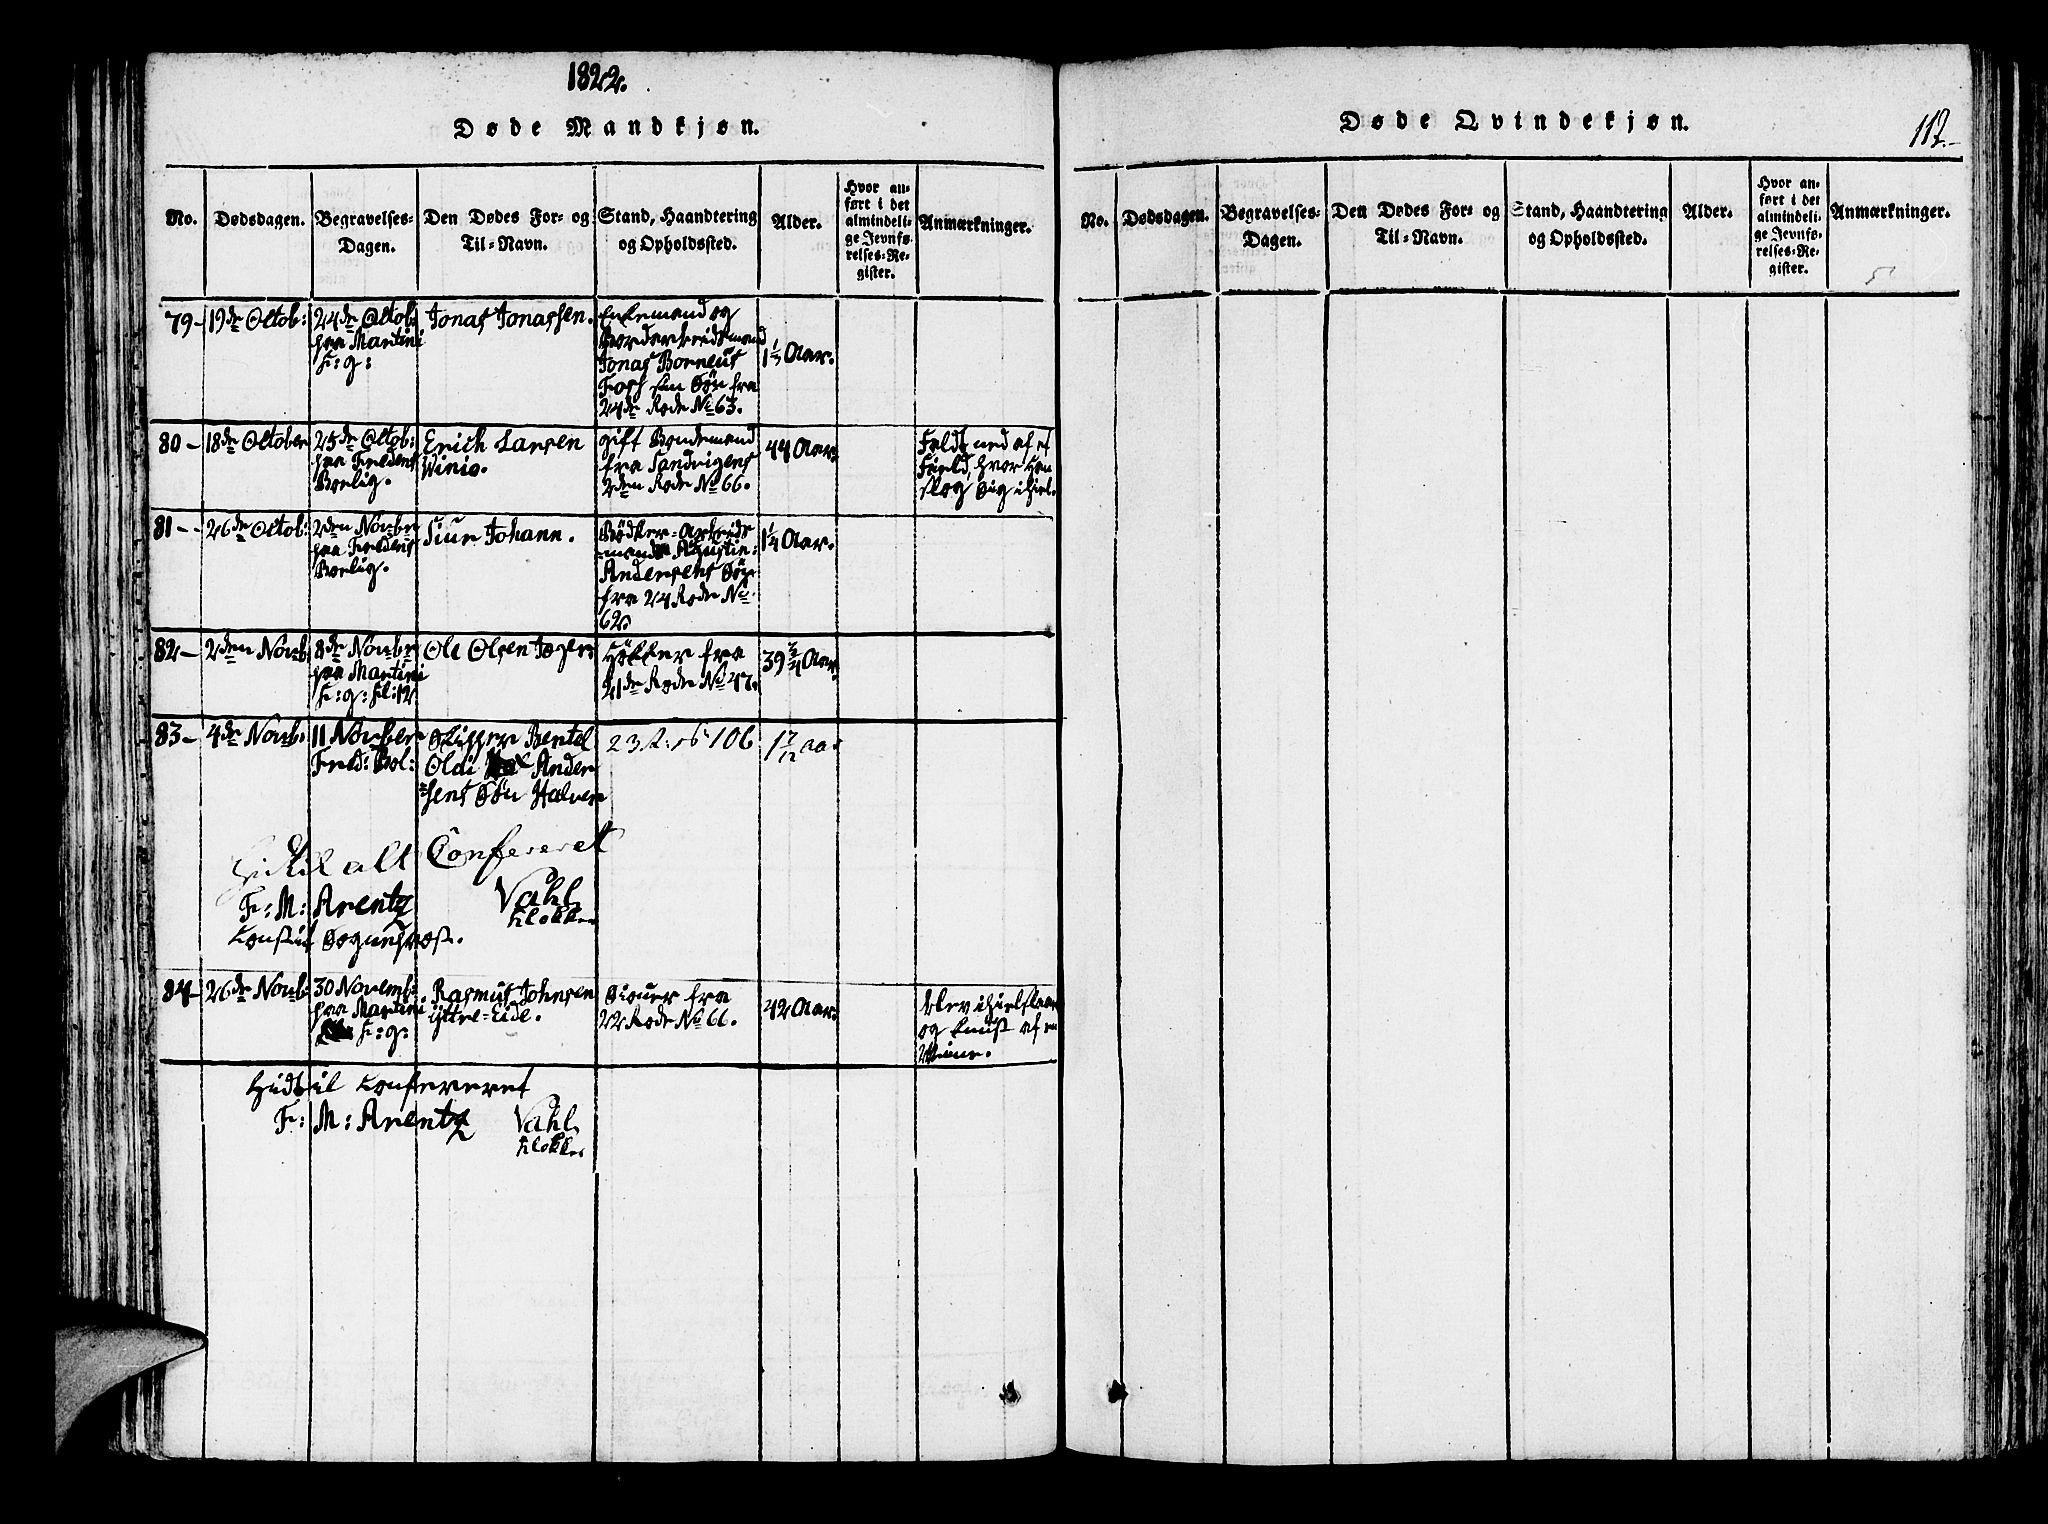 1822.
Døde Mandkjøn.
No.
Dødsdagen.
Begravelses-
Dagen.
Den Dødes For- og
Til-Navn.
Stand, Haandtering
og Opholdssted.
Alder.
Hvor an-
ført i det
almindeli-
ge Jevnfø-
relses-Re-
gister.
Anmærkninger.
79-
19de Octob:
24de Octob:
paa Martini
K: g:
Jonas Jonassen.
Enkemand og
Jonas Borneus
Søn fra
24de Rode No 63.
Aar.
80-
18de October
25de Octob:
paa Fredens
Bolig.
Erich Larsen
Winio.
gift Bondemand
fra Sandvigens
2den Rode No 66.
44 Aar.
Faldt ned af et
Field, hvor Han
slog Sig ihiel.
81-
26de Octob:
2den Novbr
paa Fredens
Bolig.
Siur Johann.
Bødker-Arbeids
-mand Agustin:
Andersens Søn
fra 24 Rode No
62.
1 1/4 Aar.
82-
2den Novb:
8de Novbr
paa Martini
K: g: Kl: 12
Ole Olsen
Høkker fra
21de Rode No 47.
39 3/4 Aar.
83-
4de Novb:
11 Novber
Fred: Bol:
Skipper Bentel
Oldi Ander
-sens Søn Halvor
23 R: No 106
1 7/12 Aar
Hidtil alt Confereret
F: M: Arentz
Vahl
Const: Sognepræst.
Klokker
84-
26de Novb:
30 Novemb:
paa Martini
K: g:
Rasmus Johnsen
Ÿttre-Eide.
Siouer fra
22 Rode No 66.
42 Aar.
blev ihielslaaet
og knust af en
Hidtil Confereret
F: M: Arentz
Vahl
Klokker
Døde Qvindekjøn.
117.-
No.
Dødsdagen.
Begravelses-
Dagen.
Den Dødes For- og
Til-Navn.
Stand, Haandtering
og Opholdssted.
Alder.
Hvor an-
ført i det
almindeli-
ge Jevnfø-
relses-Re-
gister.
Anmærkninger.